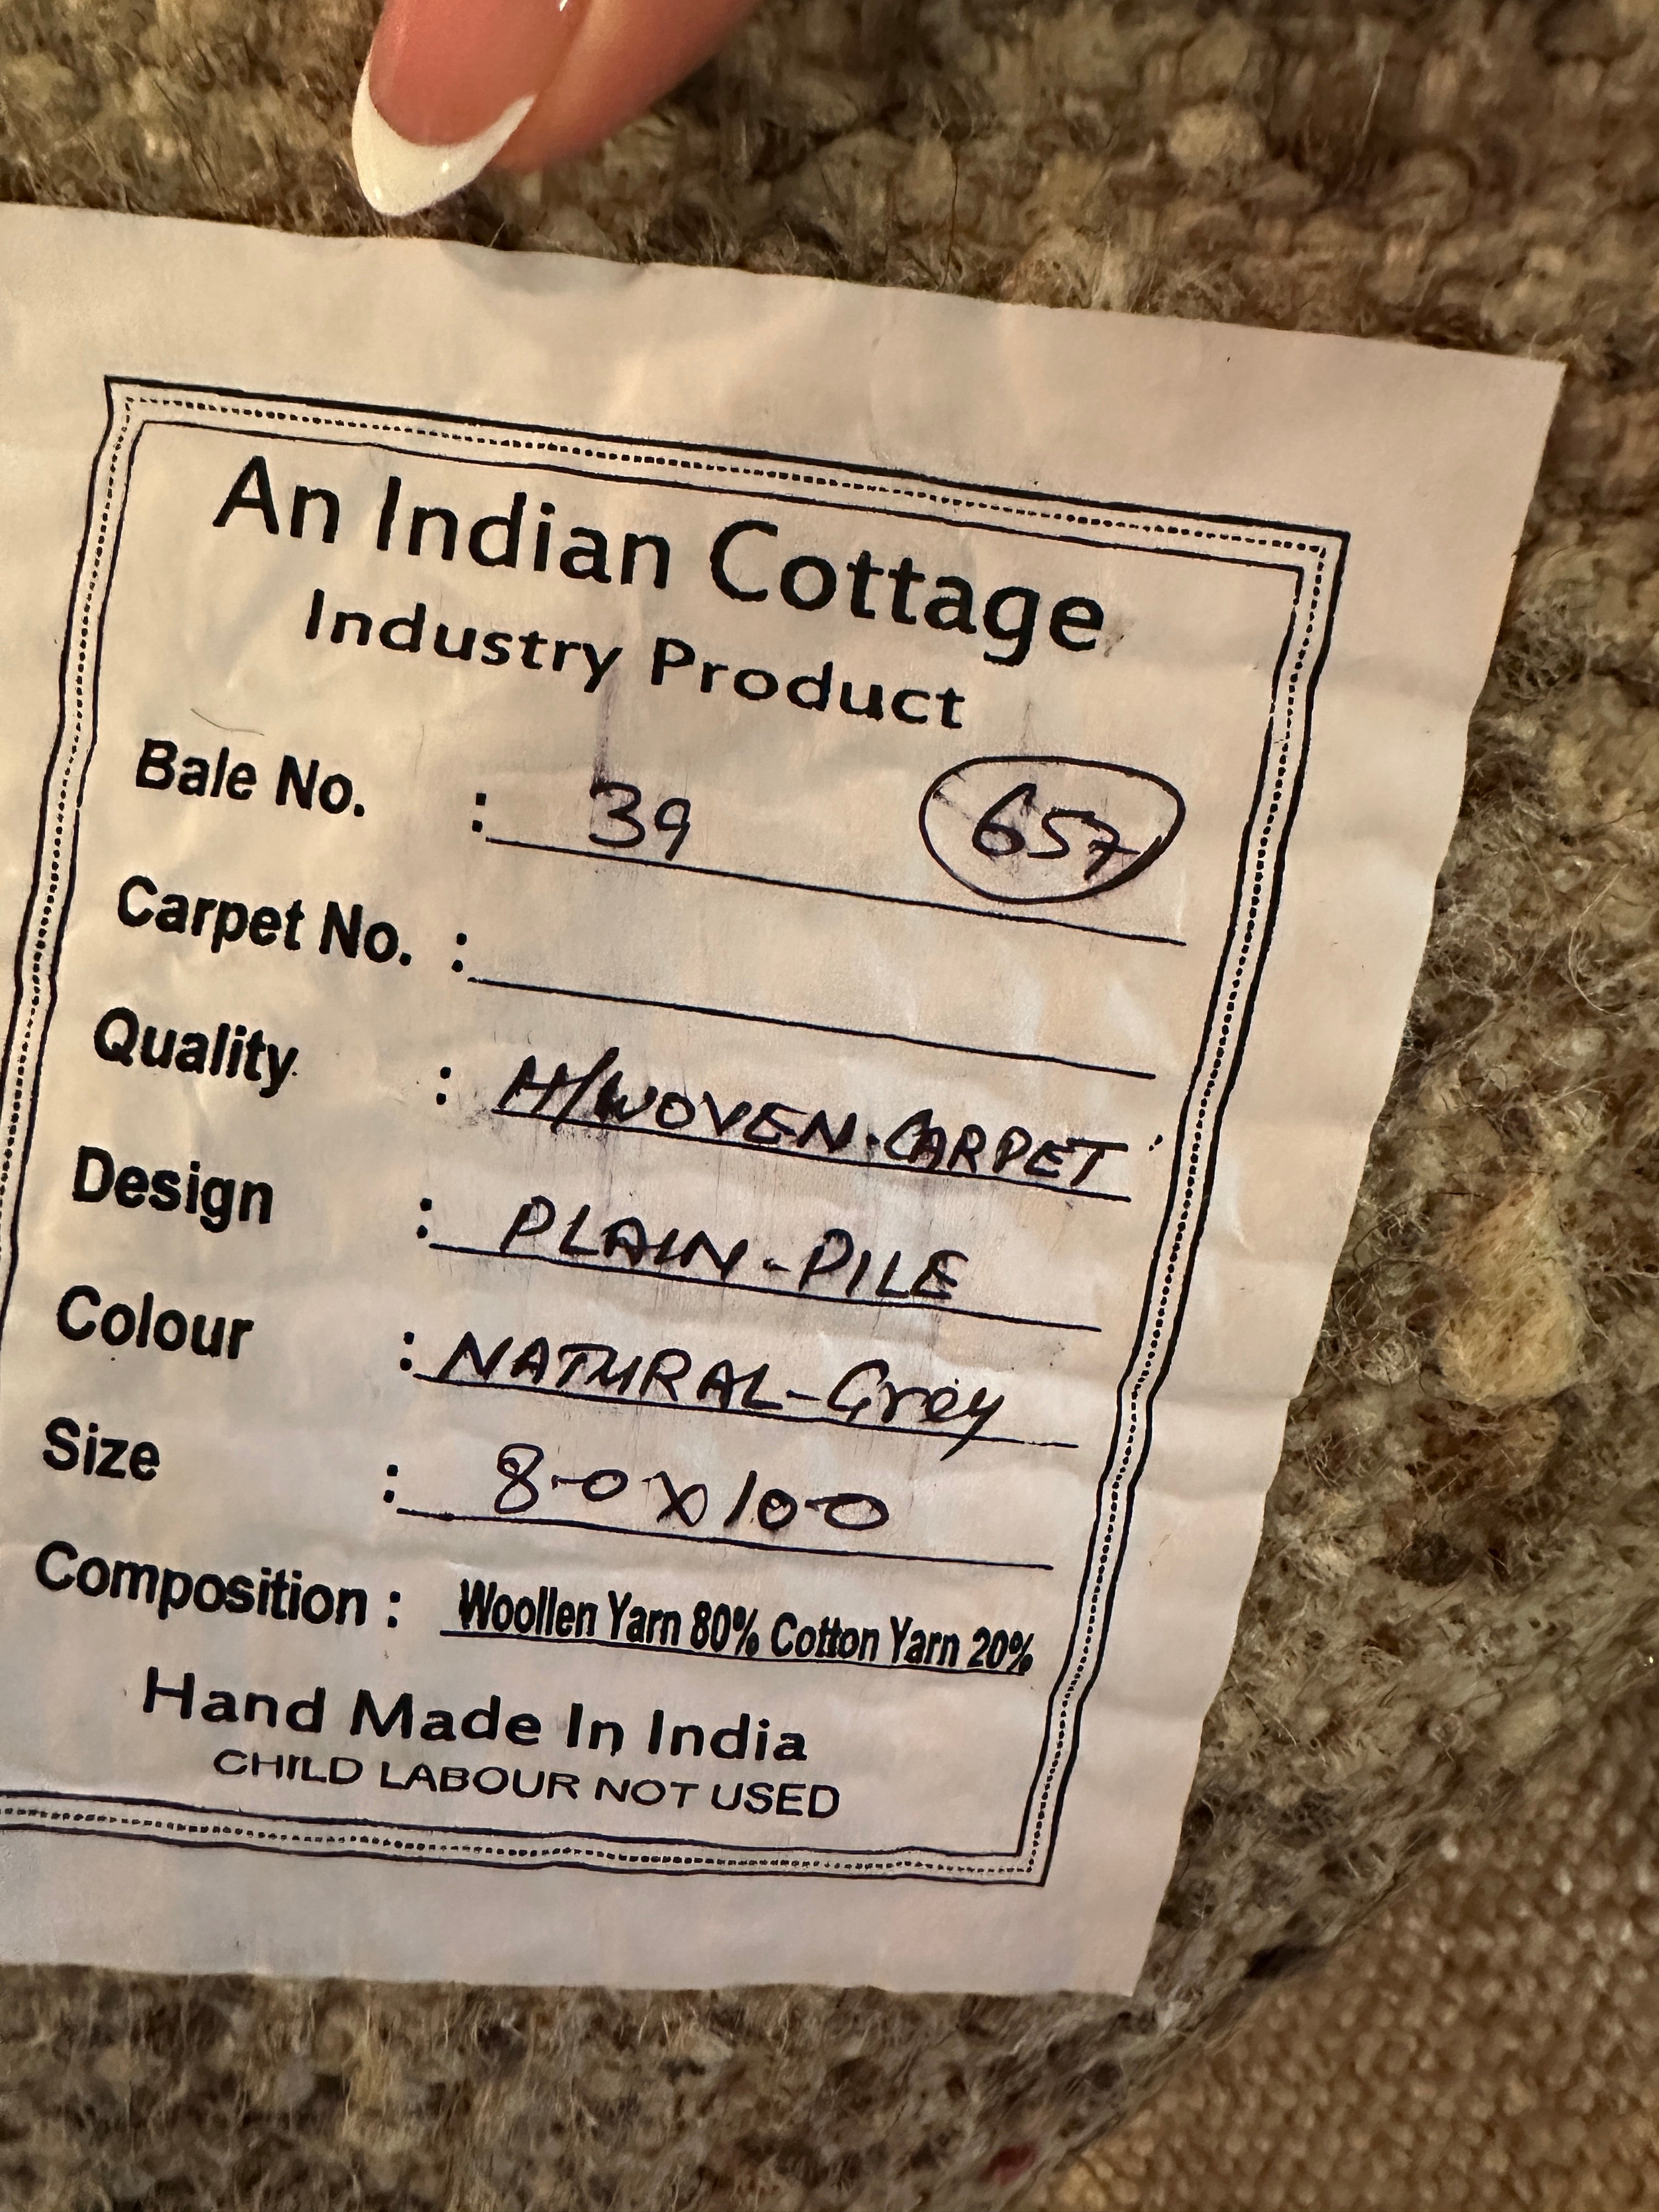 An Indian Cottage
Industry Product
Bale No. : 39 657
Carpet No. :
Quality : H/WOVEN-CARPET
Design : PLAIN-PILE
Colour : NATURAL-Grey
Size : 8-0 X 10-0
Composition : Woollen Yarn 80% Cotton Yarn 20%
Hand Made In India
CHILD LABOUR NOT USED